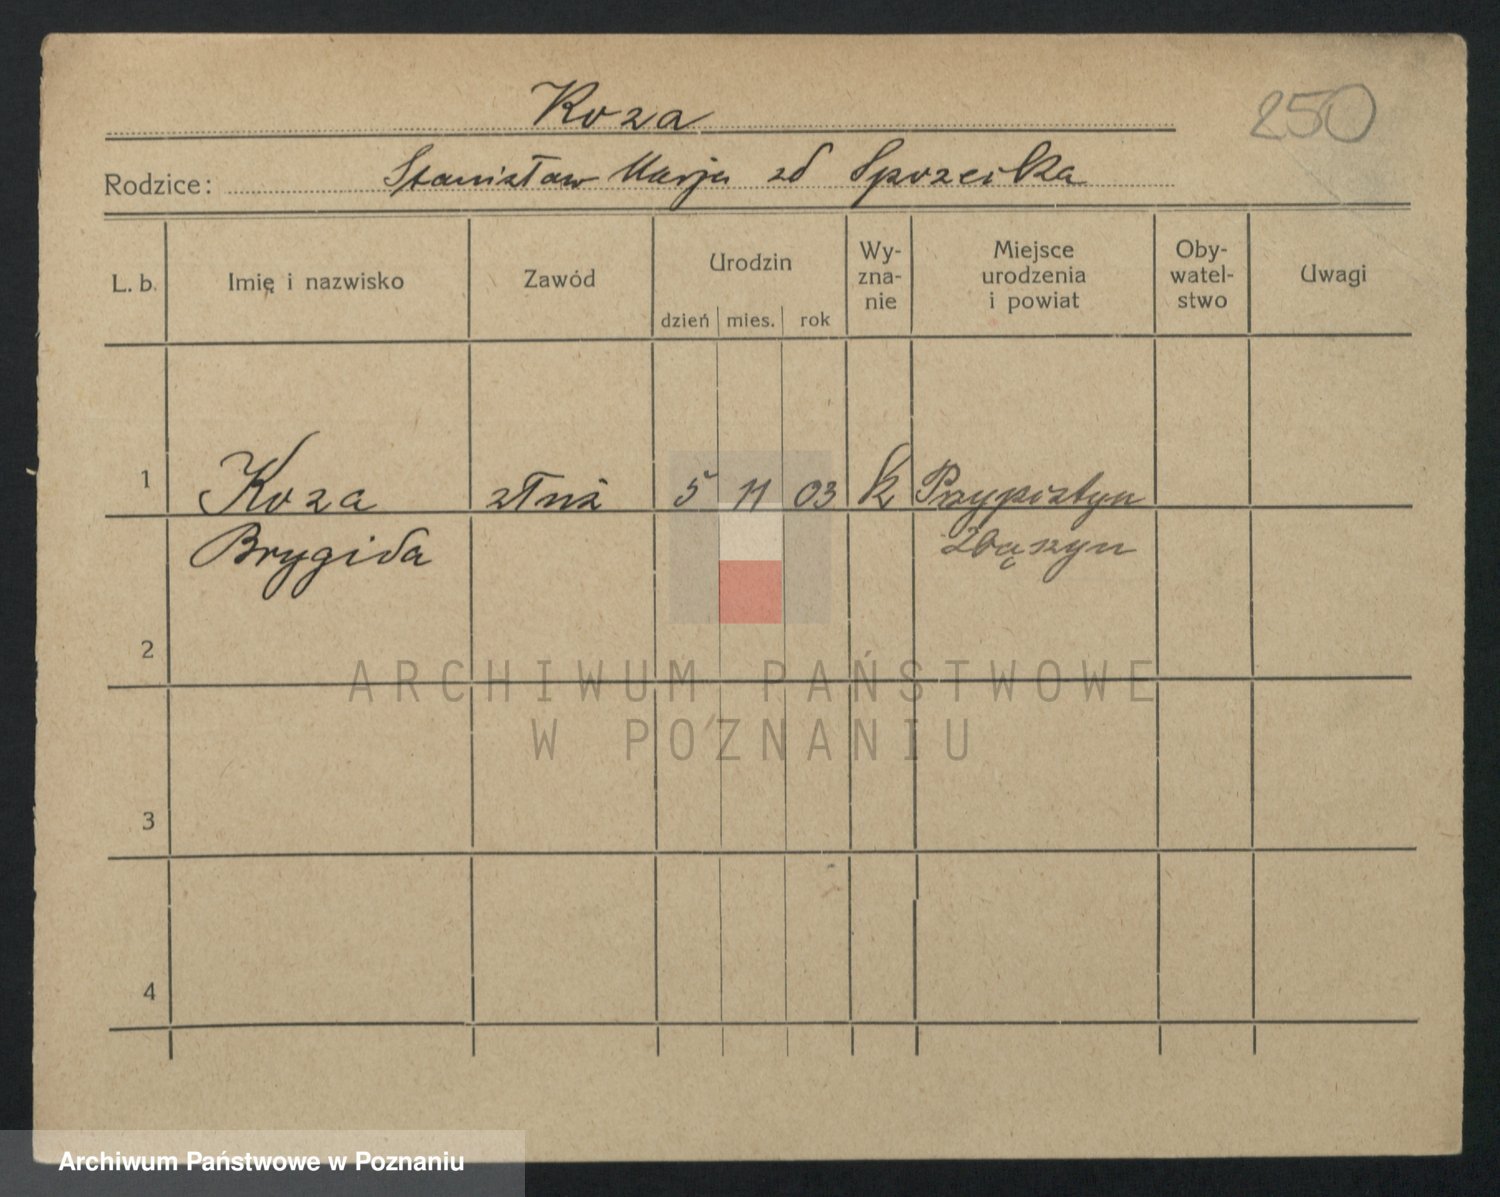 250
Koza
Rodzice: Stanisław Marja zd
L. b. Imię i nazwisko Zawód Urodzin dzień mies. rok Wy-zna-nie Miejsce urodzenia i powiat Oby-watel-stwo Uwagi
1 Koza 5 11 03 k Przyprostyn
Brygida Zbąszyn
2
ARCHIWUM PAŃSTWOWE
W POZNANIU
3
4
Archiwum Państwowe w Poznaniu